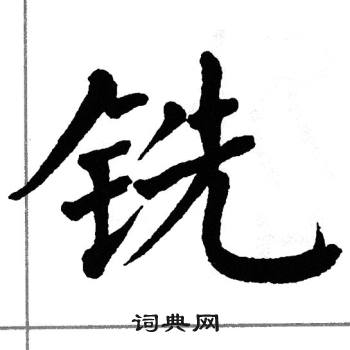 铣
词典网